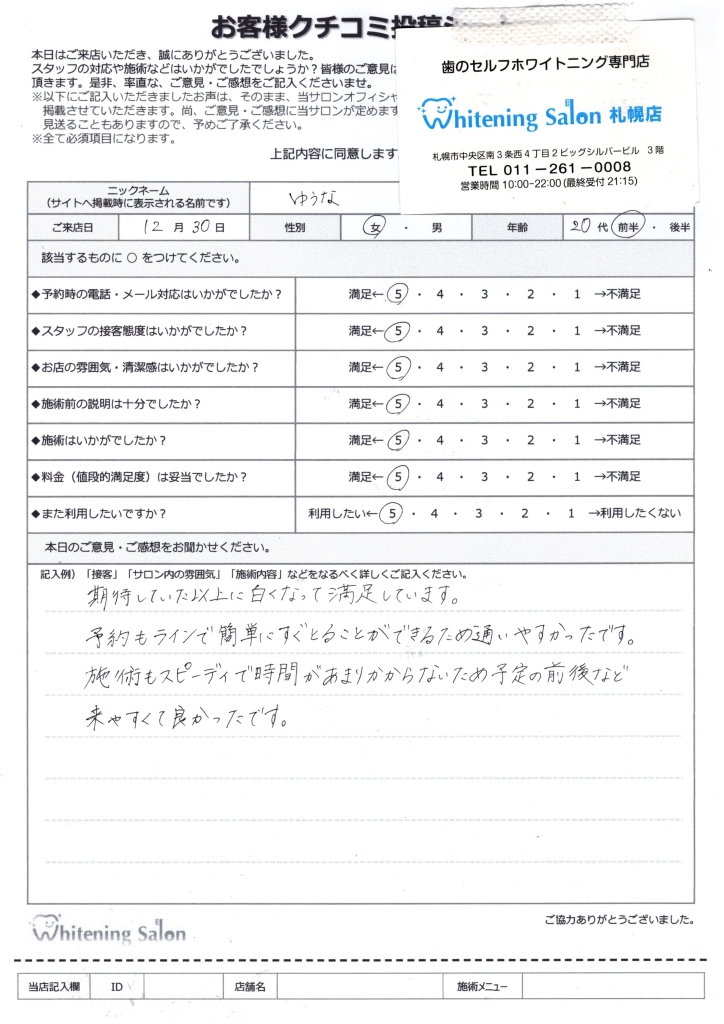 お客様クチコミ投稿
本日はご来店いただき、誠にありがとうございました。
スタッフの対応や施術などはいかがでしたでしょうか？皆様のご意見は
頂きます。是非、率直な、ご意見・ご感想をご記入くださいませ。
※以下にご記入いただきましたお声は、そのまま、当サロンオフィシャ
掲載させていただきます。尚、ご意見・ご感想に当サロンが定めます
見送ることもありますので、予めご了承ください。
※全て必須項目になります。
上記内容に同意します
歯のセルフホワイトニング専門店
Whitening Salon 札幌店
札幌市中央区南3条西4丁目2ビッグシルバービル 3階
TEL 011-261-0008
営業時間 10:00-22:00(最終受付 21:15)
ニックネーム
（サイトへ掲載時に表示される名前です） ゆうな
ご来店日 12 月 30 日 性別 女 ・ 男 年齢 20 代 前半 ・ 後半
該当するものに ○ をつけてください。
◆予約時の電話・メール対応はいかがでしたか？ 満足← 5 ・ 4 ・ 3 ・ 2 ・ 1 →不満足
◆スタッフの接客態度はいかがでしたか？ 満足← 5 ・ 4 ・ 3 ・ 2 ・ 1 →不満足
◆お店の雰囲気・清潔感はいかがでしたか？ 満足← 5 ・ 4 ・ 3 ・ 2 ・ 1 →不満足
◆施術前の説明は十分でしたか？ 満足← 5 ・ 4 ・ 3 ・ 2 ・ 1 →不満足
◆施術はいかがでしたか？ 満足← 5 ・ 4 ・ 3 ・ 2 ・ 1 →不満足
◆料金（値段的満足度）は妥当でしたか？ 満足← 5 ・ 4 ・ 3 ・ 2 ・ 1 →不満足
◆また利用したいですか？ 利用したい← 5 ・ 4 ・ 3 ・ 2 ・ 1 →利用したくない
本日のご意見・ご感想をお聞かせください。
記入例）「接客」「サロン内の雰囲気」「施術内容」などをなるべく詳しくご記入ください。
期待していた以上に白くなって満足しています。
予約もラインで簡単にすぐとることができるため通いやすかったです。
施術もスピーディで時間があまりかからないため予定の前後など
来やすくて良かったです。
ご協力ありがとうございました。
Whitening Salon
当店記入欄 ID 店舗名 施術メニュー